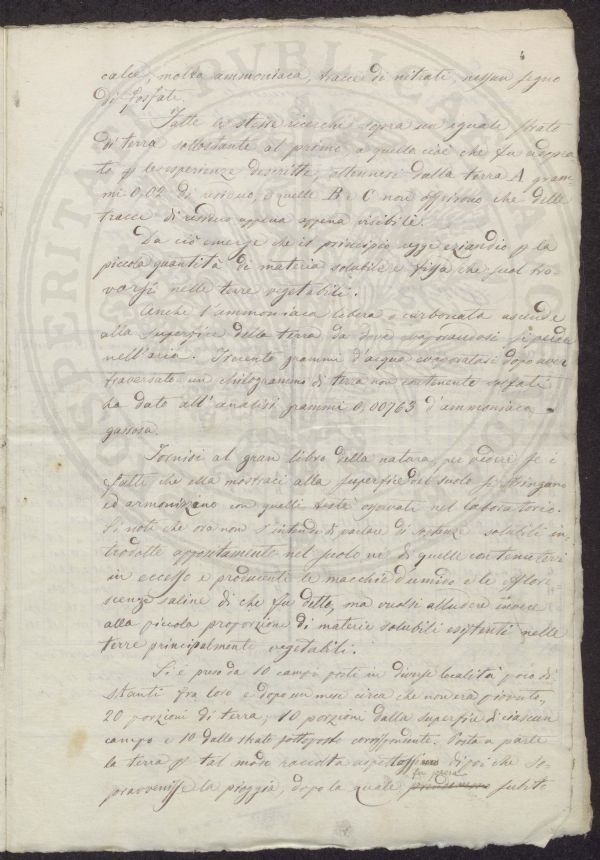 4
calce, molta ammoniaca, tracce di nitrati, nessun segno
di fosfati.
Fatte le stesse ricerche sopra un eguale strato
di terra sottostante al primo, a quella cioè che fu adopra
ta per le esperienze descritte, ottennesi dalla terra A gram-
mi 0,02 di residuo, e quelle B e C non offrirono che delle
tracce di residuo appena appena visibile.
Da ciò emerge che il principio regge eziandio per la
piccola quantità di materia solubile e fissa che suol tro-
varsi nelle terre vegetabili.
Anche l'ammoniaca libera o carbonata ascende
alla superficie della terra da dove evaporandosi si perde
nell'aria. Trecento grammi d'acqua evaporatasi dopo aver
traversato un chilogrammo di terra non contenente solfati
ha dato all'analisi grammi 0,00763 d'ammoniaca
gassosa.
Tornisi al gran libro della natura, per vedere se i
fatti che ella mostraci alla superficie del suolo si stringano
ed armonizzino con quelli testè osservati nel laboratorio.
Si noti che ora non s'intende di parlare di sostanze solubili in-
trodotte appositamente nel suolo nè di quelle contenutevi
in eccesso e producenti le macchie d'umido e le efflore-
scenze saline di che fu detto, ma vuolsi alludere invece
alla piccola proporzione di materie solubili esistenti nelle
terre principalmente vegetabili.
Si è preso da 10 campi posti in diverse località poco di-
stanti fra loro e dopo un mese circa che non era piovuto,
20 porzioni di terra; 10 porzioni dalla superficie di ciascun
campo e 10 dallo strato sottoposto corrispondente. Posta a parte
la terra per tal modo raccolta aspettossi dipoi che so-
fu presa
pravvenisse la pioggia, dopo la quale subito